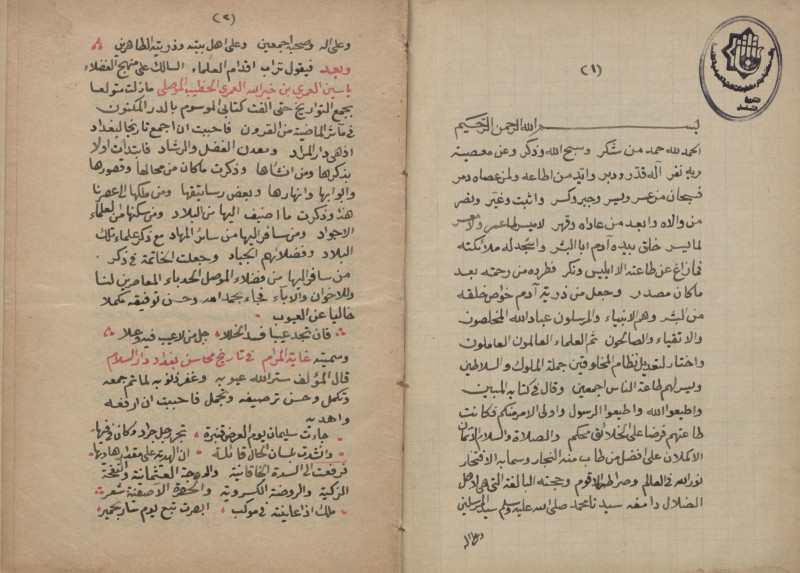 (١)
بسم الله الرحمن الرحيم
الحمد لله حمد من شكر وسبح الله وذكر وعن معصية
ربه نفر آله قدر ودبر وايد من اطاعه ولمن عصاه دمر
فسبحان من عسر ويسر وجبر وكسر واثبت وغير ونصر
من والاه وابعد من عاداه وقهر لا ميسر لما عسر ولا معسر
لما يسر خلق بيده آدم ابا البشر واسجد له ملائكته
فما زاغ عن طاعته الا ابليس ونكر فطرده من رحمته بعد
ما كان مصدر وجعل من ذرية آدم خواص خلقه
من البشر وهم الانبياء والمرسلون عباد الله المخلصون
والاتقياء والصالحون ثم العلماء العالمون العاملون
واختار لتعديل نظام المخلوقين جملة الملوك والسلاطين
ويسر لهم طاعة الناس اجمعين وقال في كتابه المبين
واطيعوا الله واطيعوا الرسول واولي الامر منكم فكانت
طاعتهم فرضا على الخلائق محكم والصلاة والسلام الاتمان
الاكملان على افضل من طاب منه النجار وسما به الافتخار
نور الله في العالم وصراطه الاقوم وحجته البالغة التي هي لاهل
الضلال دامغه سيدنا محمد صلى الله عليه وسلم سيد المرسلين
وعلى اله
(٢)
وعلى اله وصحبه اجمعين وعلى اهل بيته وذريته الطاهرين
وبعد فيقول تراب اقدام العلماء السالك على منهج الفضلاء
ياسين العمري بن خير الله العمري الخطيب الموصلي ما زلت متولعا
بجمع التواريخ حتى الفت كتابي الموسوم بالدر المكنون
في مآثر الماضية من القرون فاحببت ان اجمع تاريخا لبغداد
اذ هي دار المراد ومعدن الفضل والرشاد فابتدأت اولا
بذكرها ومن انشأها وذكرت ما كان من محالها وقصورها
وابوابها وانهارها وبعض رساتيقها ومن ملكها الى عصرنا
هذا وذكرت ما اضيف اليها من البلاد ومن سكنها من العلماء
الاجواد ومن سافر اليها من سائر المهاد مع ذكر علماء تلك
البلاد وفضلائهم الجياد وجعلت الخاتمة في ذكر
من سافر اليها من فضلاء الموصل الحدباء المعاصرين لنا
وللاخوان والآباء فجاء بحمد الله وحسن توفيقه مكملا
خاليا عن العيوب
فان تجد عيبا فسد الخللا جل من لا عيب فيه وعلا
وسميته غاية المرام في تاريخ محاسن بغداد دار السلام
قال المؤلف ستر الله عيوبه وغفر ذنوبه لما تم جمعه
وتكمل وحسن ترصيفه وتجمل فاحببت ان ارفعه
واهديه
جاءت سليمان يوم العرض قنبرة تجر رجل جراد كان في فيها
وانشدت بلسان الحال قائلة ان الهدية على مقدار هاديها
فرفعت الى السدة الخاقانية والدوحة العثمانية والنفحة
الزكية والروضة الكسروية والحضرة الآصفية شعر
ملك اذا عاينته في موكب ابصرت تبع يوم سار بحمير